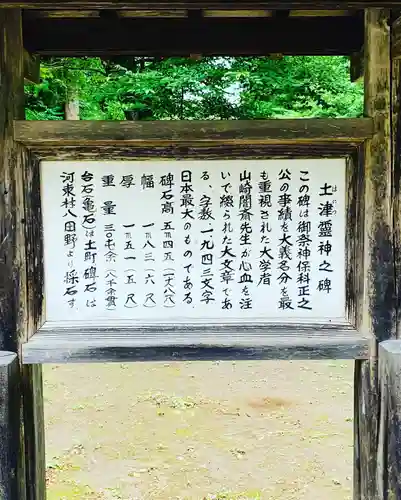 土津靈神之碑
はにつ
この碑は御祭神保科正之
公の事績を大義名分を最
も重視された大学者
山崎闇斎先生が心血を注
いで綴られた大文章であ
る。字数一九四三文字
日本最大のものである
碑石高 五米四五(十八尺)
幅 一米八三(六尺)
厚 一米五一(五尺)
重量 三〇屯余(八千余貫)
台石(亀石)は土町碑石は
河東村八田野より採石す